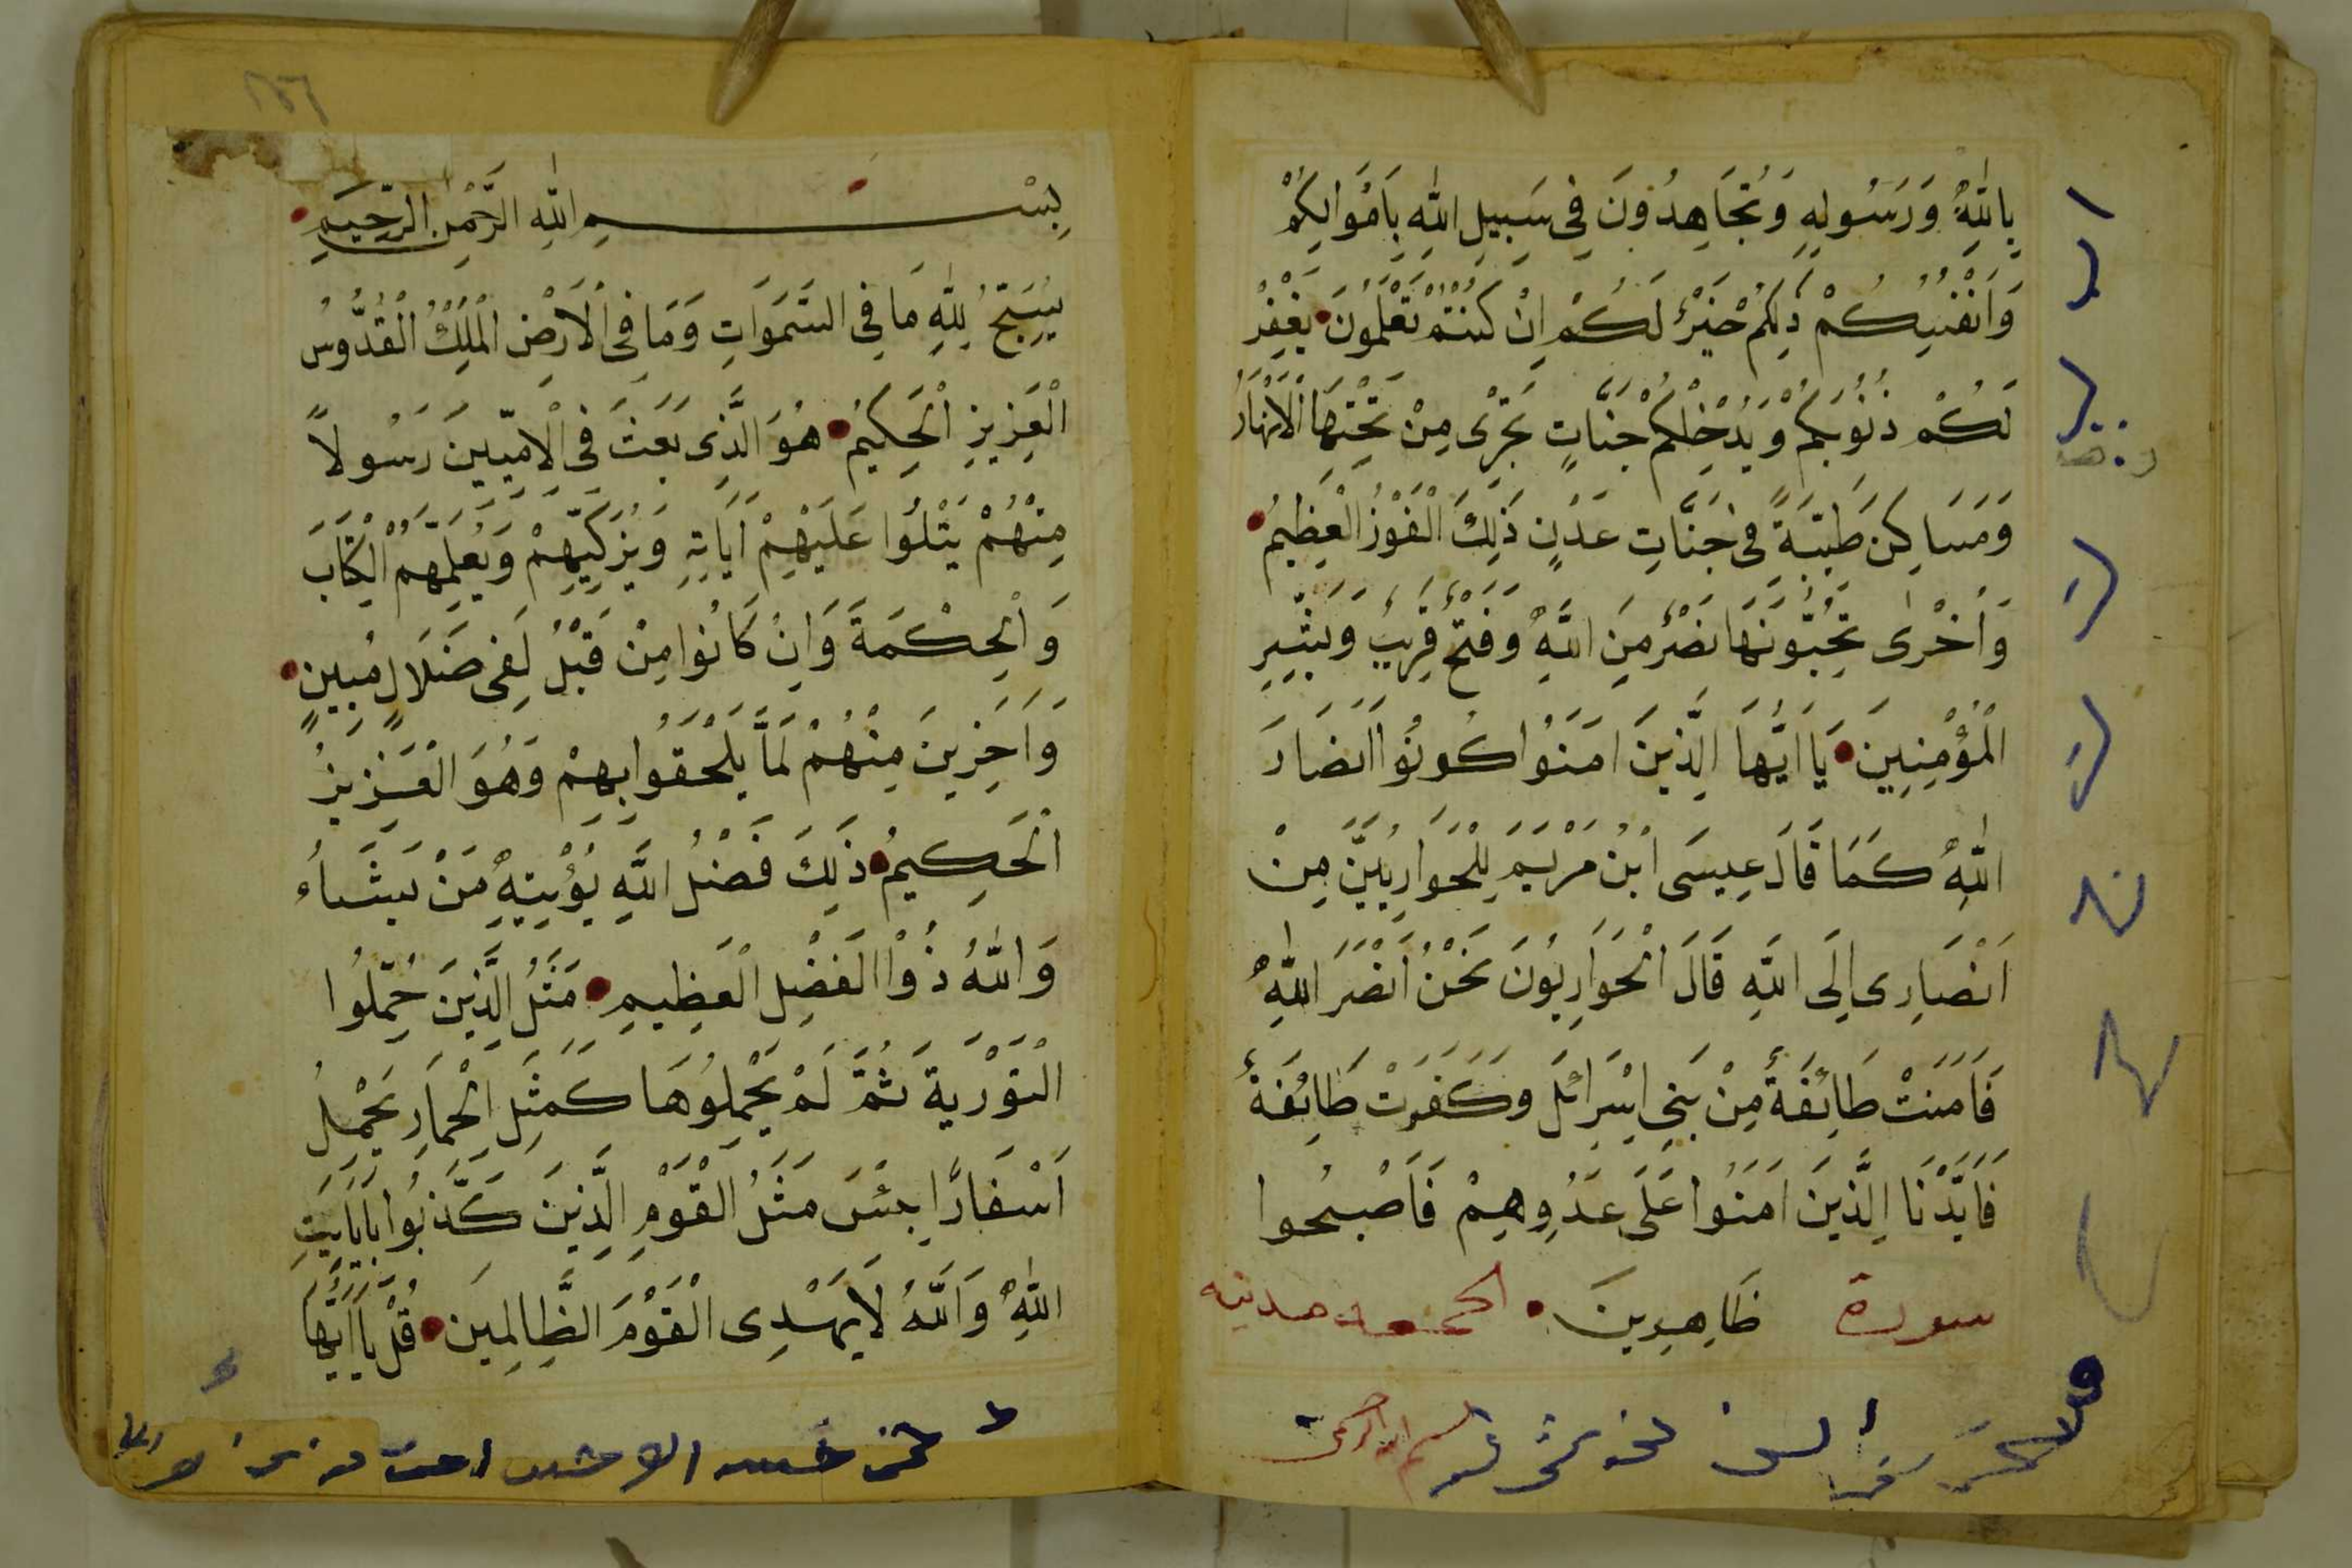 بِاللّٰهِ وَرَسُولِهِ وَتُجَاهِدُونَ فِي سَبِيلِ اللّٰهِ بِاَمْوَالِكُمْ
وَاَنْفُسِكُمْ ذٰلِكُمْ خَيْرٌ لَكُمْ اِنْ كُنْتُمْ تَعْلَمُونَ يَغْفِرْ
لَكُمْ ذُنُوبَكُمْ وَيُدْخِلْكُمْ جَنَّاتٍ تَجْرِى مِنْ تَحْتِهَا الْاَنْهَارُ
وَمَسَاكِنَ طَيِّبَةً فِى جَنَّاتِ عَدْنٍ ذَلِكَ الْفَوْزُ الْعَظِيمُ
وَاُخْرٰى تُحِبُّونَهَا نَصْرٌ مِنَ اللّٰهِ وَفَتْحٌ قَرِيبٌ وَبَشِّرِ
الْمُؤْمِنِينَ يَا اَيُّهَا الَّذِينَ اٰمَنُوا كُونُوا اَنْصَارَ
اللّٰهِ كَمَا قَالَ عِيسَى ابْنُ مَرْيَمَ لِلْحَوَارِيِّينَ مَنْ
اَنْصَارِى اِلَى اللّٰهِ قَالَ الْحَوَارِيُّونَ نَحْنُ اَنْصَرَ اللّٰهِ
فَاٰمَنَتْ طَائِفَةٌ مِنْ بَنِى اِسْرَائِلَ وَكَفَرَتْ طَائِفَةٌ
فَاَيَّدْنَا الَّذِينَ اٰمَنُوا عَلَى عَدُوِّهِمْ فَاَصْبَحُوا
سورة ظَاهِرِينَ الجمعة مدنيه
بِسْمِ اللّٰهِ الرَّحْمٰنِ الرَّحِيمِ
يُسَبِّحُ لِلّٰهِ مَا فِي السَّمَوَاتِ وَمَا فِى الْاَرْضِ الْمَلِكِ الْقُدُّوسِ
الْعَزِيزِ الْحَكِيمِ هُوَ الَّذِى بَعَثَ فِى الْاُمِّيِّينَ رَسُولاً
مِنْهُمْ يَتْلُوا عَلَيْهِمْ اٰيَاتِهِ وَيُزَكِّيهِمْ وَيُعَلِّمُهُمُ الْكِتَابَ
وَالْحِكْمَةَ وَاِنْ كَانُوا مِنْ قَبْلُ لَفِى ضَلَالٍ مُبِينٍ
وَاٰخَرِينَ مِنْهُمْ لَمَّا يَلْحَقُوا بِهِمْ وَهُوَ الْعَزِيزُ
الْحَكِيمُ ذٰلِكَ فَضْلُ اللّٰهِ يُؤْتِيهِ مَنْ يَشَاءُ
وَاللّٰهُ ذُوْا الْفَضْلِ الْعَظِيمِ مَثَلُ الَّذِينَ حُمِّلُوا
التَّوْرٰيةَ ثُمَّ لَمْ يَحْمِلُوهَا كَمَثَلِ الْحِمَارِ يَحْمِلُ
اَسْفَارًا بِئْسَ مَثَلُ الْقَوْمِ الَّذِينَ كَذَّبُوا بِاٰيَاتِ
اللّٰهِ وَاللّٰهُ لَا يَهْدِى الْقَوْمَ الظَّالِمِينَ قُلْ يَا اَيُّهَا